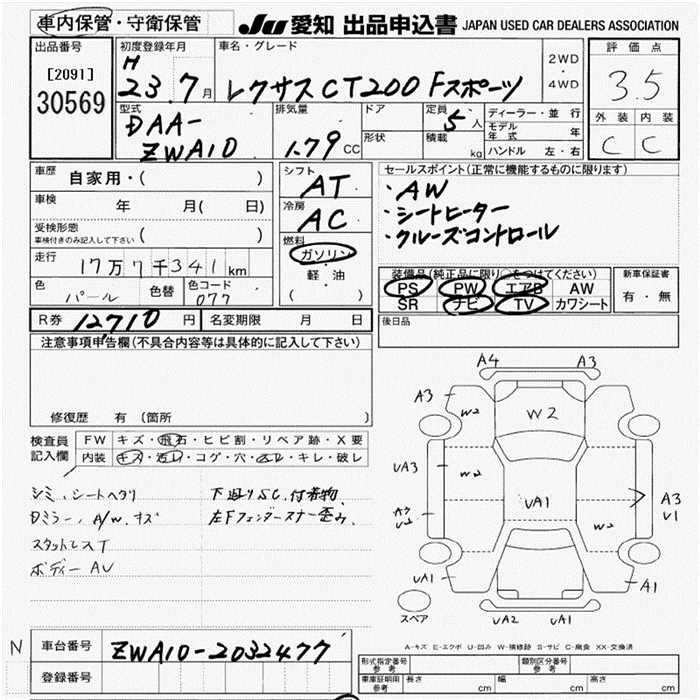 車内保管・守衛保管
JU 愛知 出品申込書 JAPAN USED CAR DEALERS ASSOCIATION
出品番号
[2091]
30569
初度登録年月
H
23.7月
車名・グレード
レクサスCT200 Fスポーツ
2WD
・
4WD
評価点
3.5
外装 内装
C C
型式
DAA-
ZWA10
排気量
1.79CC
ドア
形状
定員
5人
積載
kg
ディーラー・並行
モデル年式 年
ハンドル 左・右
車歴
自家用・( )
車検
年 月( 日)
受検形態
車検付きのみ記入して下さい ( )
走行
17万7千341km
色
パール
色替
色コード
077
シフト
AT
冷房
AC
燃料
ガソリン
・
軽・油
( )
セールスポイント(正常に機能するものに限ります)
・AW
・シートヒーター
・クルーズコントロール
装備品(純正品に限り をつけてください)
PS PW エアB AW
SR ナビ TV カワシート
新車保証書
有・無
後日品
R券 12,710円
名変期限 月 日
注意事項申告欄(不具合内容等は具体的に記入して下さい)
修復歴 有 (箇所 )
検査員
記入欄
FW キズ・飛石・ヒビ割・リペア跡・X要
内装 キズ・汚レ・コゲ・穴・スレ・キレ・破レ
シミ、シートヘタリ
Dミラー、A/W、キズ
スタットレスT
ボディーAU
下廻りSC、付着物
左Fフェンダーライナー歪み
A4 A3
A3 W2 W2
UA3 W2
A3
U2
UA1
W2
A3
U1
UA1 A1
スペア
UA2 UA1
A-キズ E-エクボ U-凹み W-補修跡 S-サビ C-腐食 XX-交換済
N
車台番号 ZWA10-2032477
登録番号
形式指定番号
参考
類別区分番号
参考
車庫証明用
参考
長さ cm 幅 cm 高さ cm